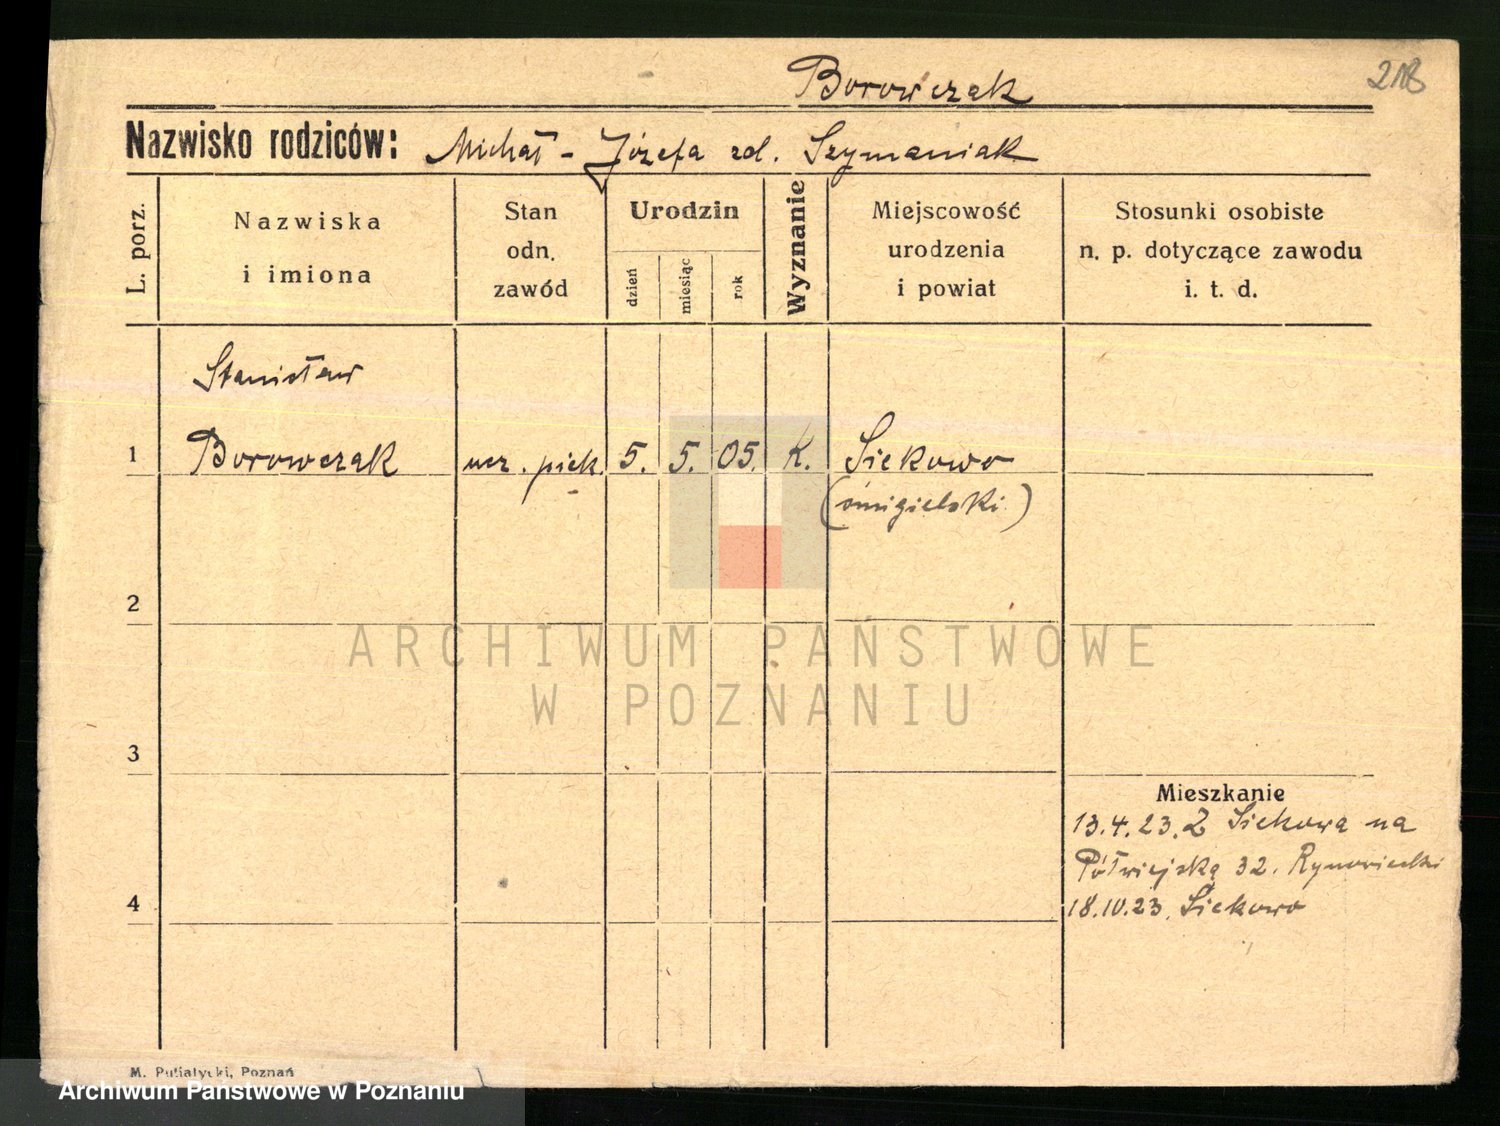 Borowczak
218
Nazwisko rodziców: Michał - Józefa zd. Szymaniak
L. porz.
Nazwiska
i imiona
Stan
odn.
zawód
Urodzin
dzień
miesiąc
rok
Wyznanie
Miejscowość
urodzenia
i powiat
Stosunki osobiste
n. p. dotyczące zawodu
i. t. d.
Stanisław
1 Borowczak ucz. piek. 5. 5. 05. K. Siekowo
(śmigielski)
2
ARCHIWUM PAŃSTWOWE
W POZNANIU
3
Mieszkanie
13.4.23. Z Siekowa na
Półwiejską 32. Rynowiecki
4
18.10.23. Siekowo
M. Putiatycki, Poznań
Archiwum Państwowe w Poznaniu